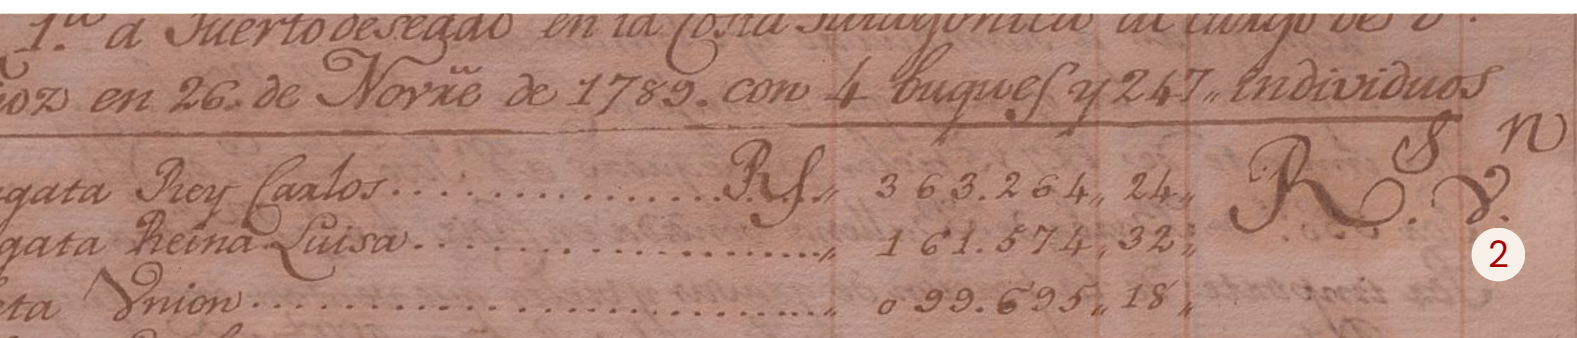 1.ª a Puerto deseado en la Costa Patagonica al cargo de D.
oz en 26. de Novrẽ de 1789. con 4 buques y 247,, individuos
gata Rey Carlos.................. Rs,, 363.264,, 24,, Rs. vn.
gata Reina Luisa.................. ,, 161.574,, 32,,
ta Vnion.................. ,, 099.695,, 18,,
2